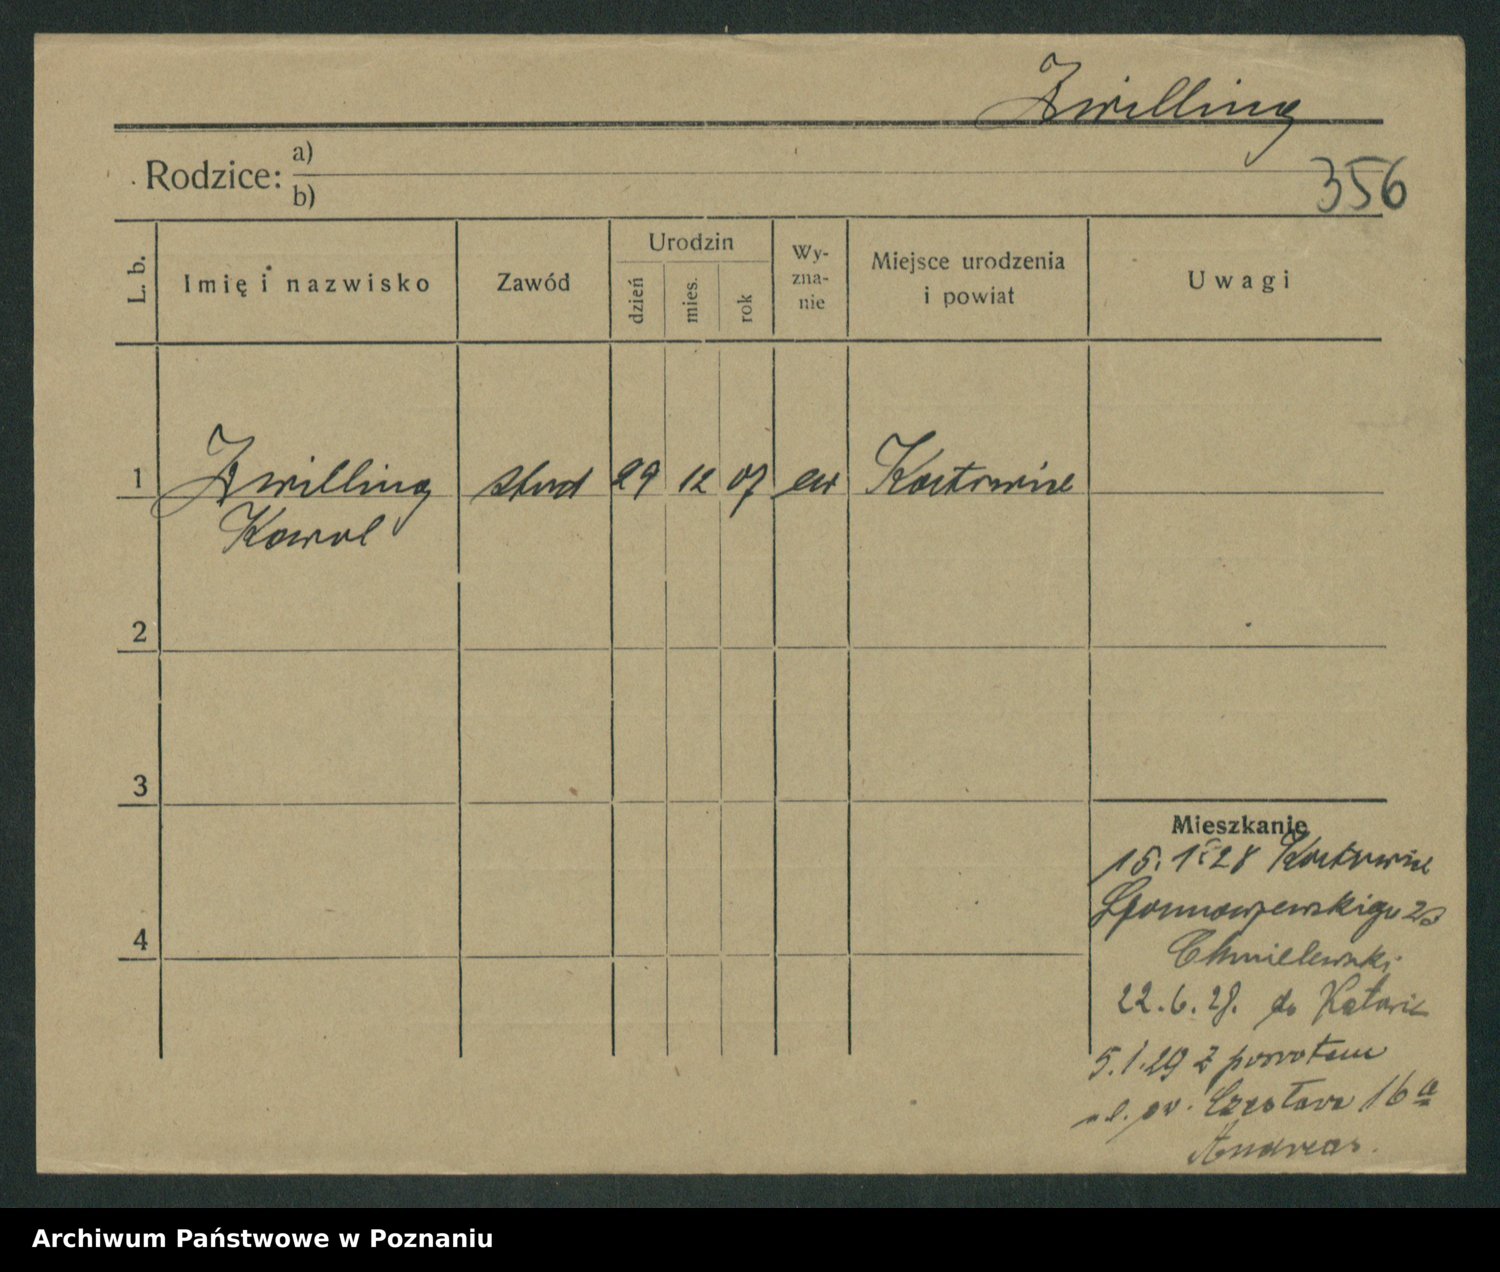 Zwilling
Rodzice: a)
b)
356
L. b.
Imię i nazwisko
Zawód
Urodzin
dzień
mies.
rok
Wy-
zna-
nie
Miejsce urodzenia
i powiat
Uwagi
1 Zwilling stud 29 12 07 ew Katowice
Karol
2
3
4
Mieszkanie
15. 1. 28 Katowice
23
Chmielewski
22.6.28. do Katowic
5.1.29 z powrotem
ul. św. Czesława 16 a
Andreas.
Archiwum Państwowe w Poznaniu